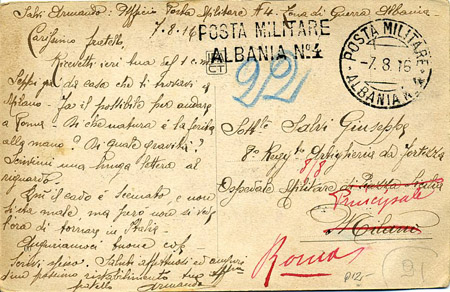 Salvi Armando: Ufficio Posta Militare #4. Zona di Guerra Albania
7-8-16
POSTA MILITARE
ALBANIA Nº4
POSTA MILITARE
-7.8.16
ALBANIA N. 4
Carissimo fratello,
Ricevetti ieri tua del 1 c.m.
Seppi per di casa che ti trovavi a
Milano - Fa il possibile per andare
a Roma. Di che natura è la ferita
alla mano? Di quale gravità?
Scrivimi una lunga lettera al
riguardo.
Qui il caldo è seccante, e non
si sta male, ma però non si vede
l'ora di tornare in Italia.
Auguriamoci buone cose
Scrivi spesso. Saluti affettuosi ed auguri
di un prossimo ristabilimento tuo aff.mo
fratello Armando
22
Sottte Salvi Giuseppe
8º Regg.to Artiglieria da fortezza
Ospedale Militare di
Principale
Milano
Roma